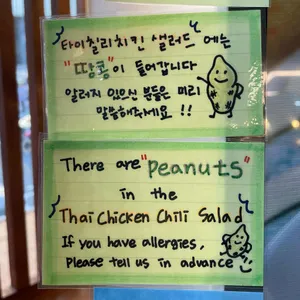 타이칠리치킨 샐러드 에는
"땅콩"이 들어갑니다
알러지 있으신 분들은 미리
말씀해주세요 !!
There are "Peanuts"
in the
Thai Chicken Chili Salad
If you have allergies,
Please tell us in advance